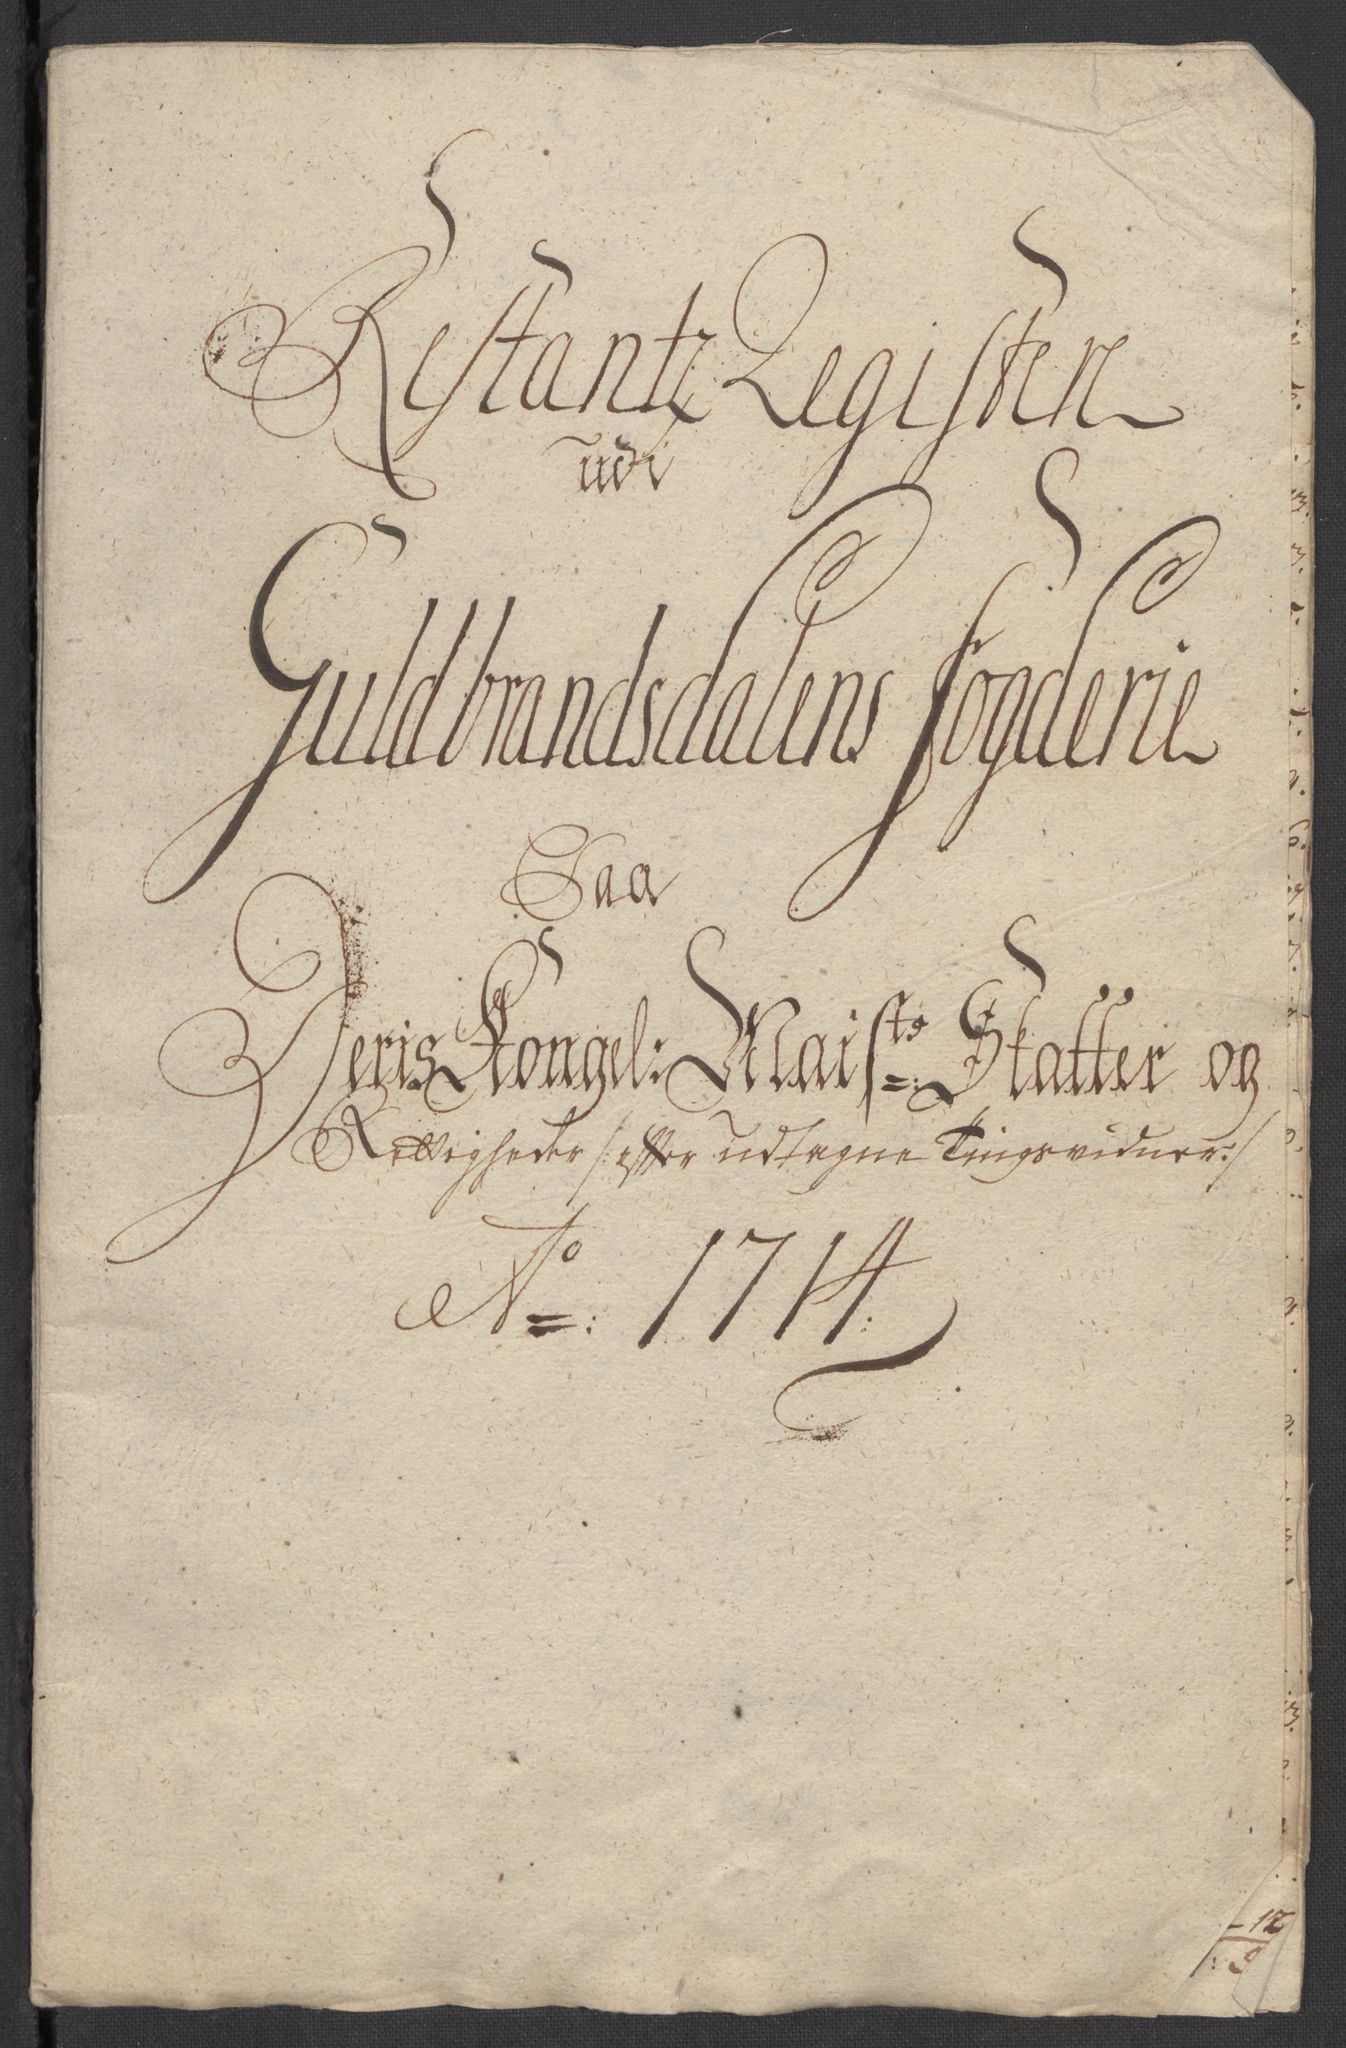 Restantz Register
udi
Guldbrandsdalens fogderie
Paa
Deris Kongel: Maists: Skatter og
Rettigheder /: efter udtagne Tingsvidner :/
Ao: 1714
12
9